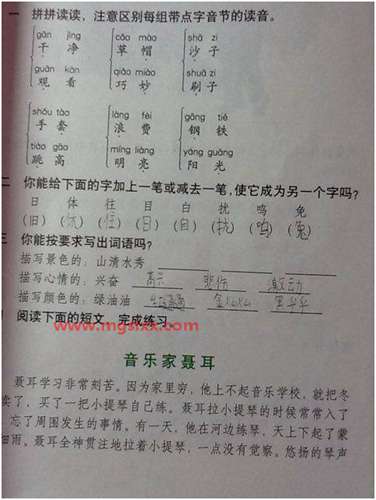 一 拼拼读读，注意区别每组带点字音节的读音。
gān jìng cǎo mào shā zi
干 净 草 帽 沙 子
guān kàn qiǎo miào shuā zi
观 看 巧 妙 刷 子
shǒu tào làng fèi gāng tiě
手 套 浪 费 钢 铁
tiào gāo míng liàng yáng guāng
跳 高 明 亮 阳 光
二 你能给下面的字加上一笔或减去一笔，使它成为另一个字吗？
日 体 往 目 白 扰 鸣 免
(旧) (休) (住) (日) (自) (拢) (鸣) (兔)
三 你能按要求写出词语吗？
描写景色的：山清水秀
描写心情的：兴奋 高兴 悲伤 激动
描写颜色的：绿油油 金灿灿 黑乎乎
阅读下面的短文，完成练习。
www.mgslxx.com
音乐家聂耳
聂耳学习非常刻苦。因为家里穷，他上不起音乐学校，就把冬
卖了，买了一把小提琴自己练。聂耳拉小提琴的时候常常入了
忘了周围发生的事情。有一天，他在河边练琴，天上下起了蒙
细雨。聂耳全神贯注地拉着小提琴，一点没有觉察。悠扬的琴声